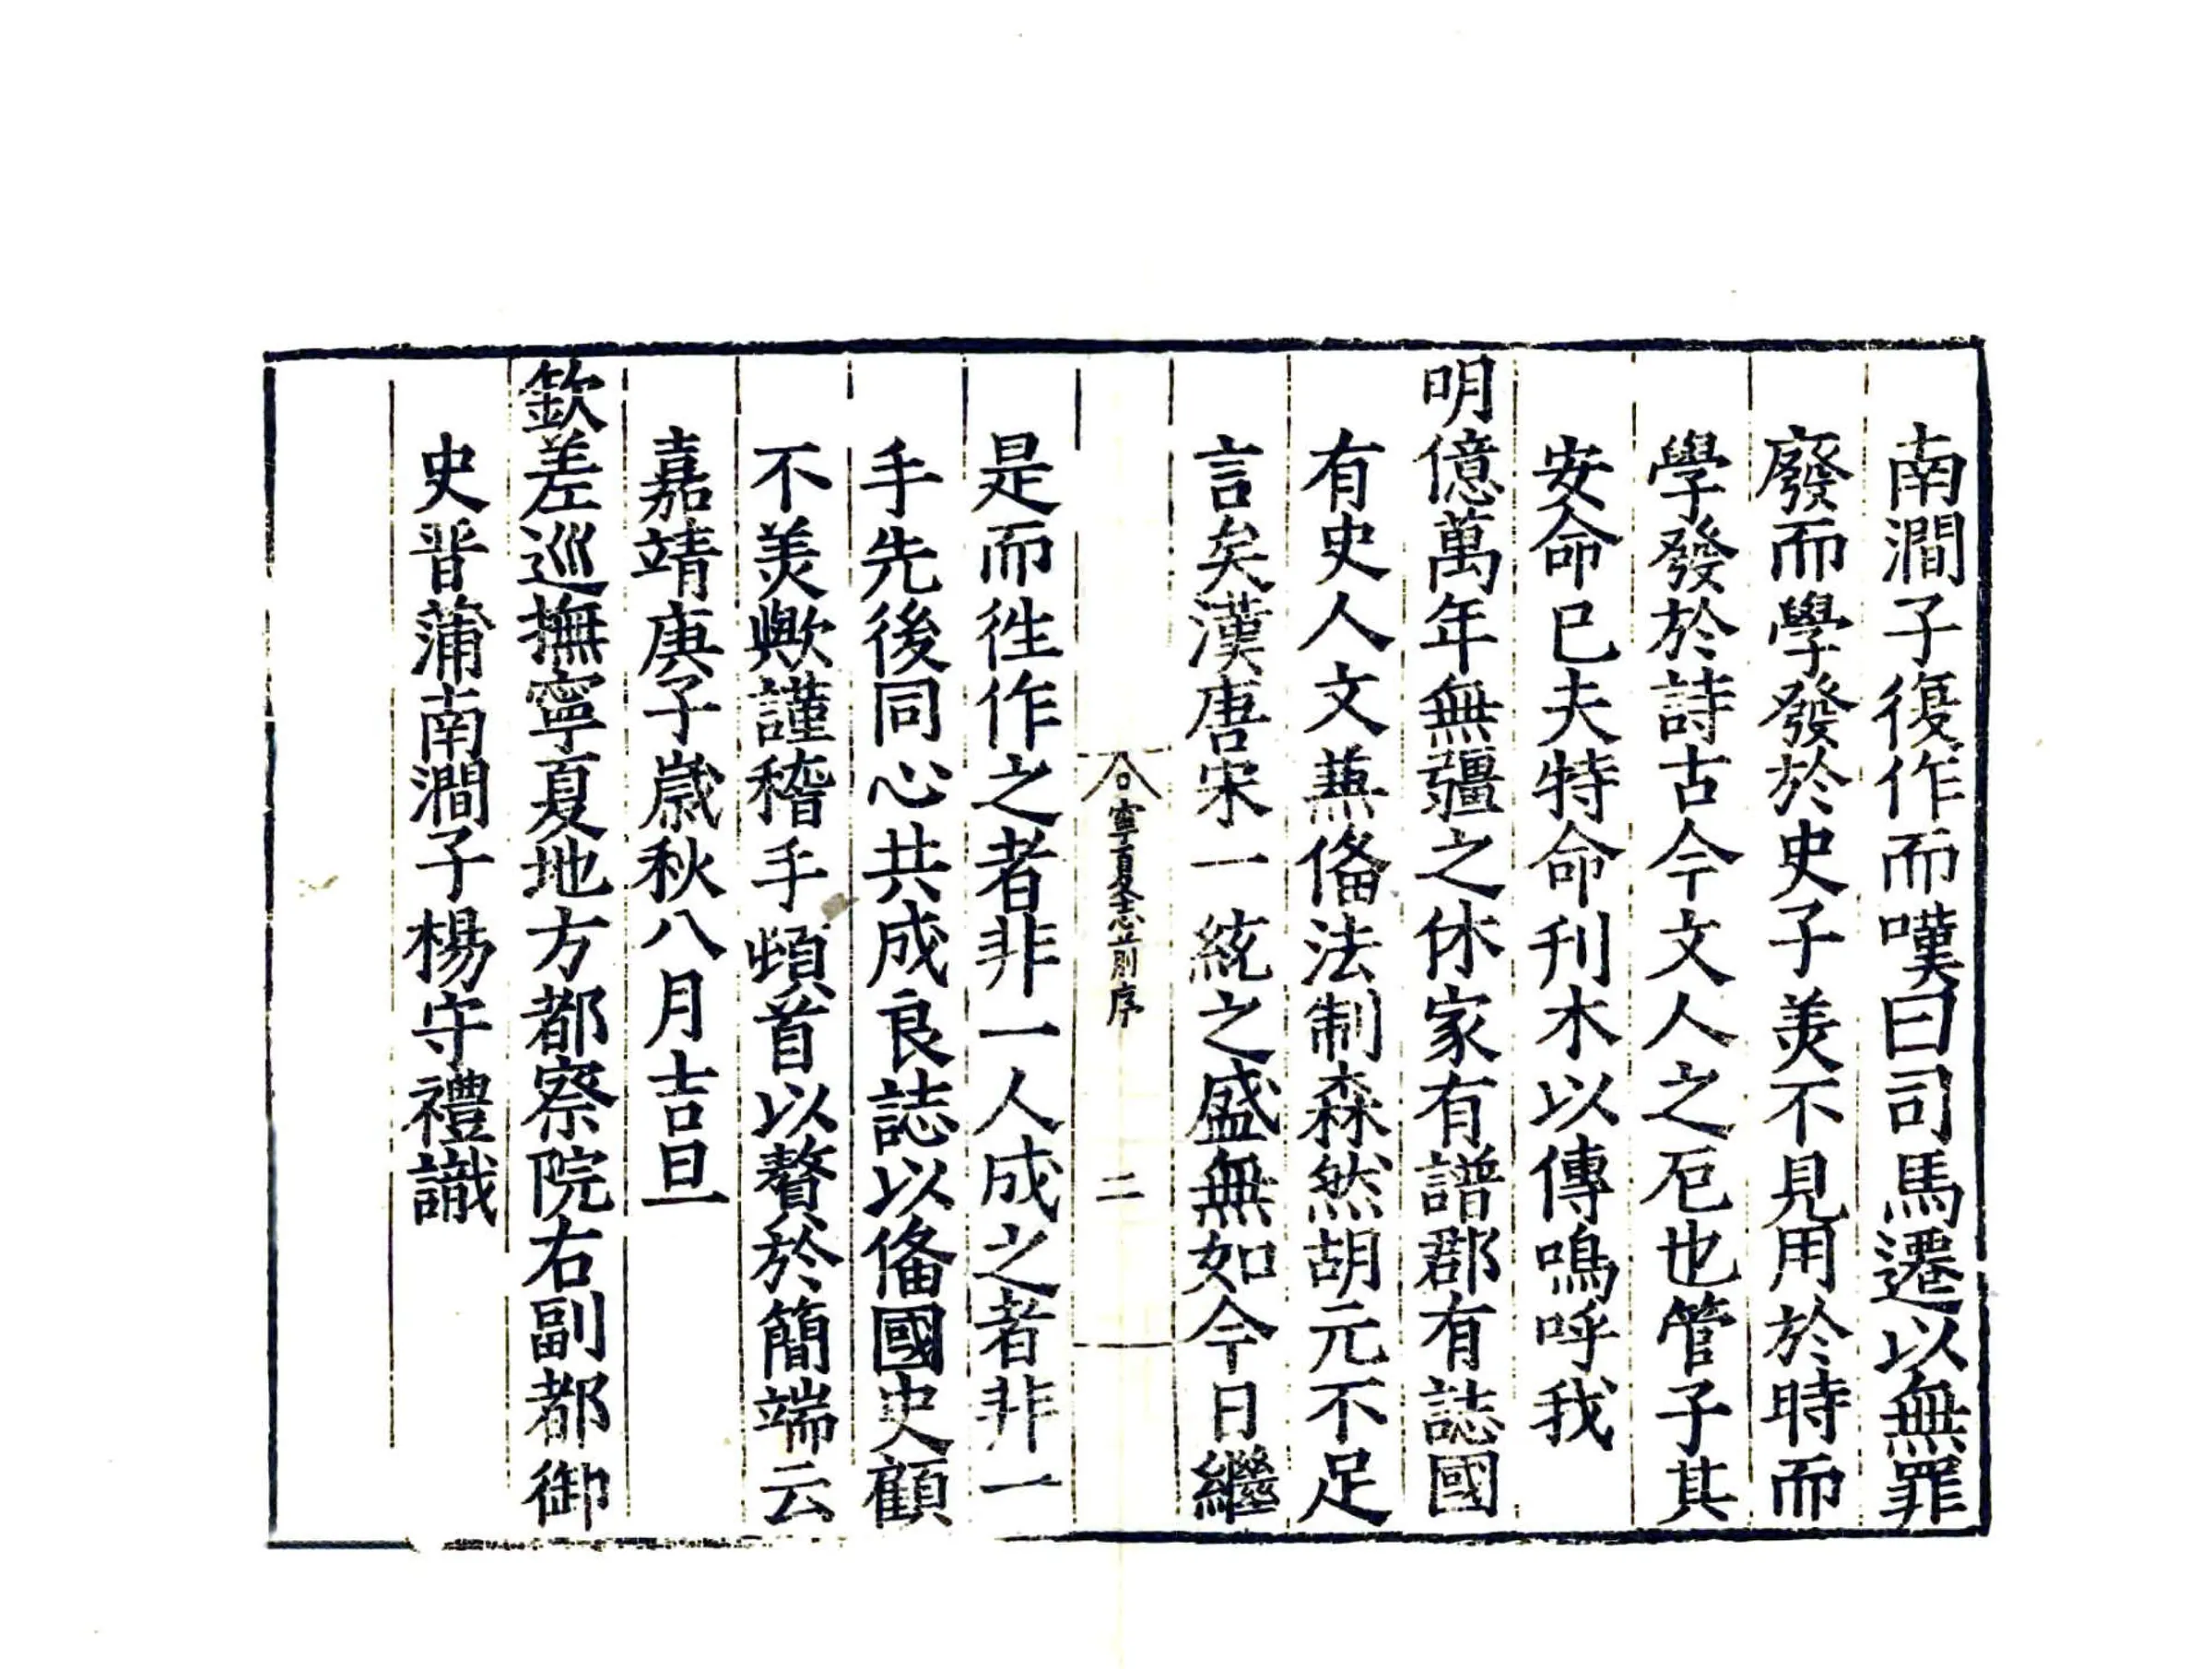 南澗子復作而嘆曰司馬遷以無罪
廢而學發於史子羙不見用於時而
學發於詩古今文人之厄也管子其
安命已夫特命刊木以傳鳴呼我
明億萬年無疆之休家有譜郡有誌國
有史人文蕪俻法制森然胡元不足
言矣漢唐宋一統之盛無如今日繼
寧夏志前序 二
是而徃作之者非一人成之者非一
手先後同心共成良誌以俻國史顧
不羙歟謹稽手頓首以贅於簡端云
嘉靖庚子嵗秋八月吉旦
欽差巡撫寧夏地方都察院右副都御
史晋蒲南澗子楊守禮識